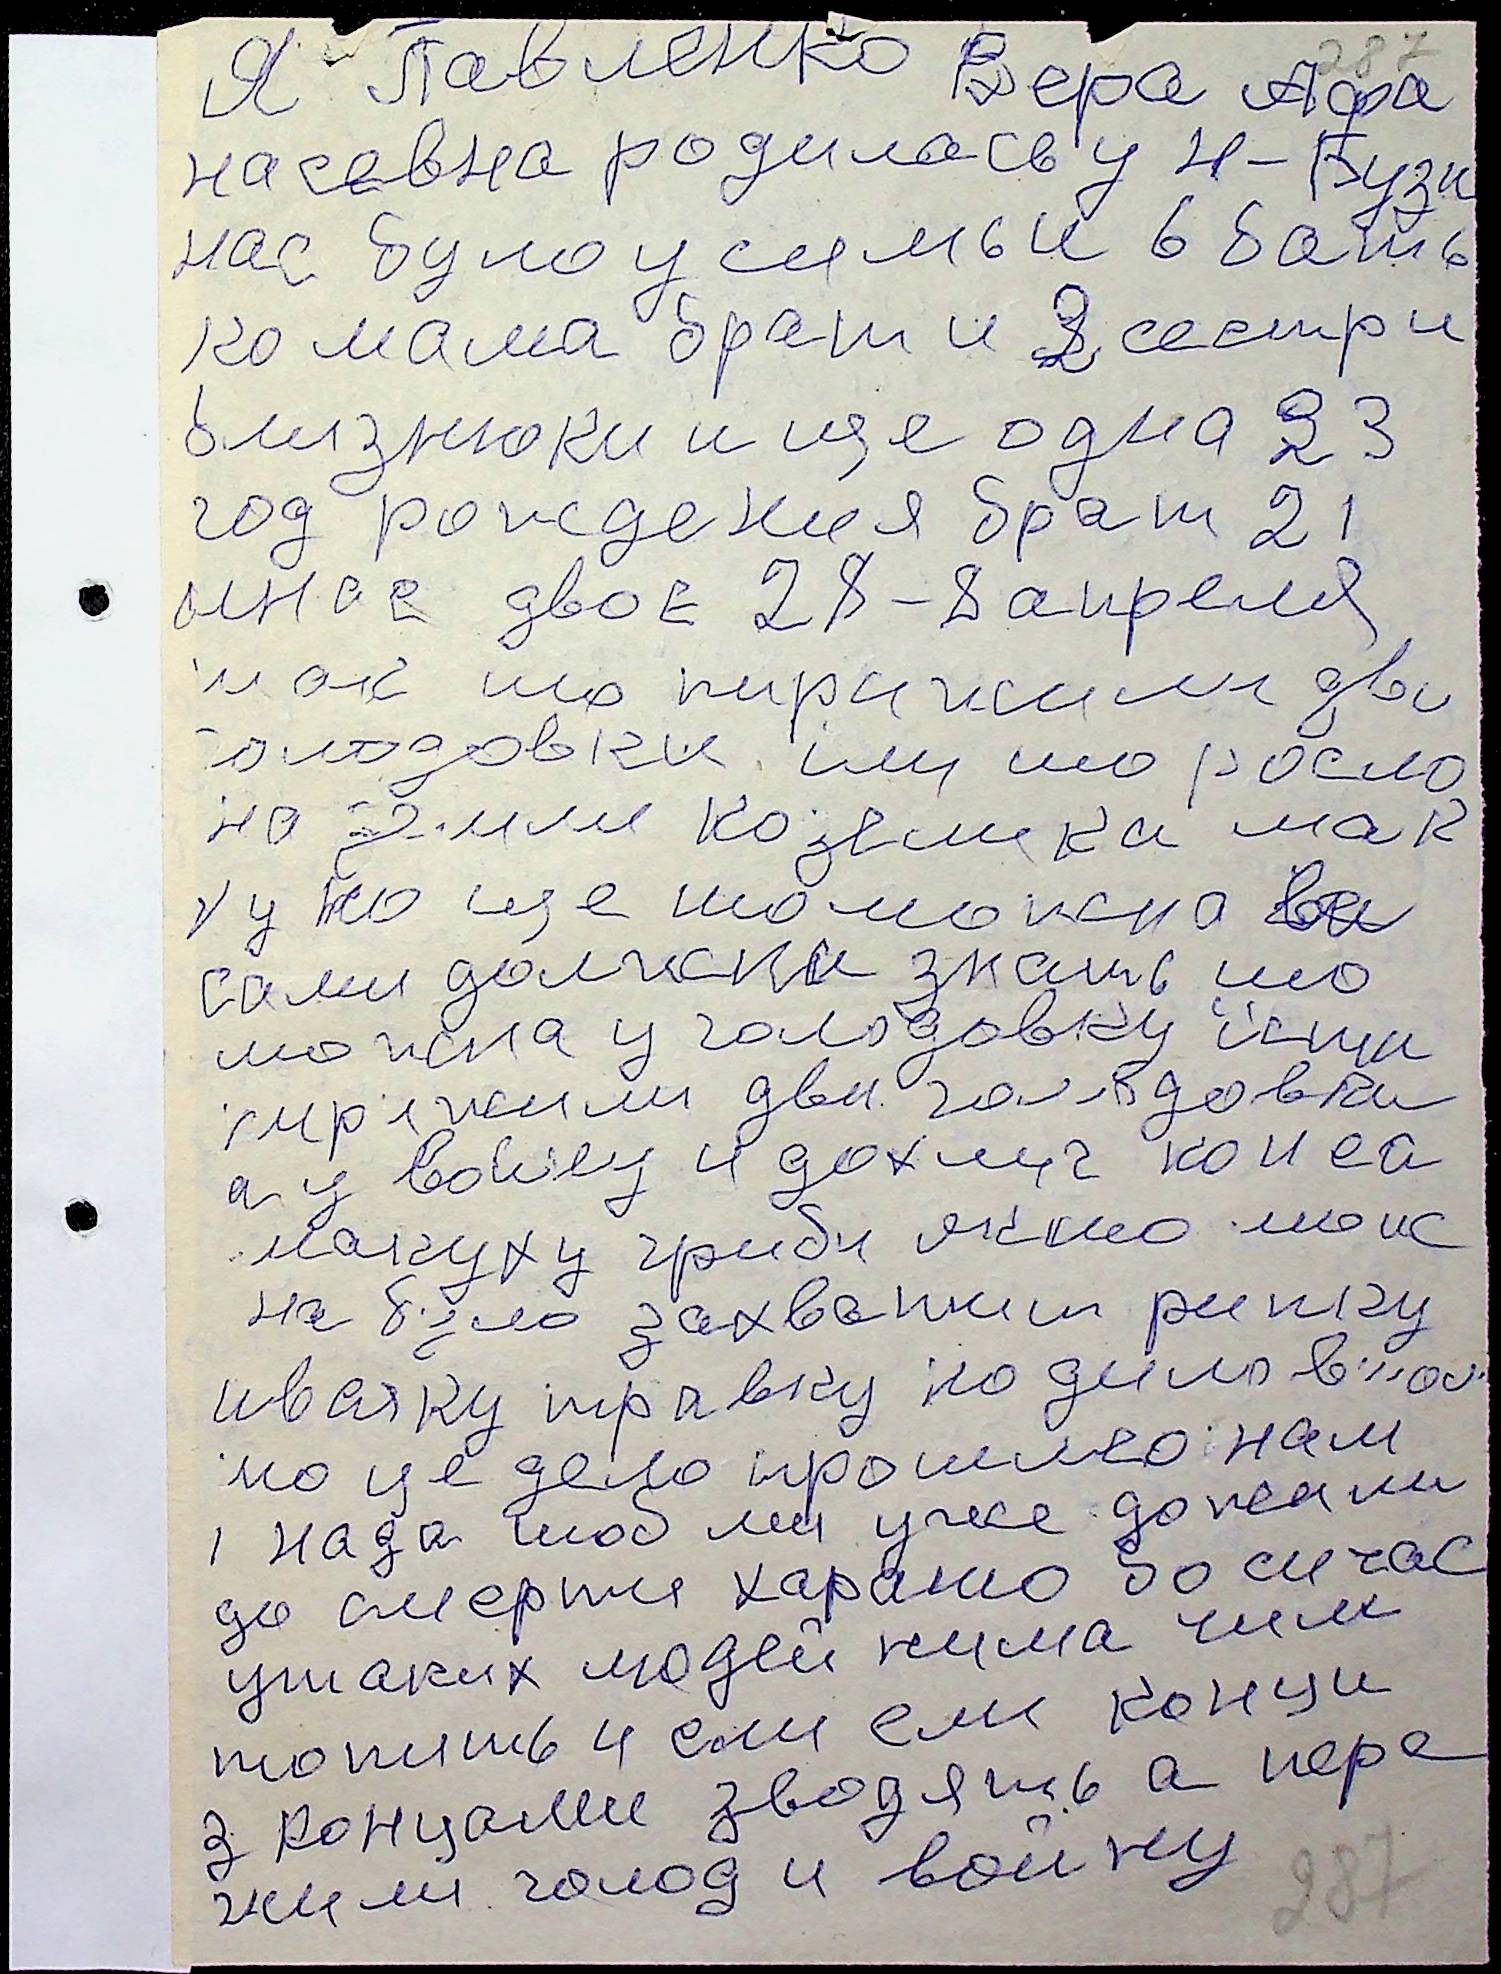 287
Я Павленко Вера Афа
насевна родилась у Н-Бузи
нас було у симьи 6 бать
ко мама брат и 2 сестри
близнюки и ще одна 23
год рождения брат 21
и нас двоє 28 - 8 апреля
так шо пирижили дви
голодовки їли шо росло
на земли козелики мак
уху ще шо можна ви
сами должни знать шо
можна у голодовку їсти
пирижили дви голодовки
а у войну и дохлих коней
макуху гриби якшо мож
на було захватит рипку
и всяку травку
но це дело прошлео нам
надо шоб ми уже дожили
до смерти харашо бо сичас
у таких людей нима чим
топить и ели ели концы
з концами зводять а пере
жили голод и войну
287